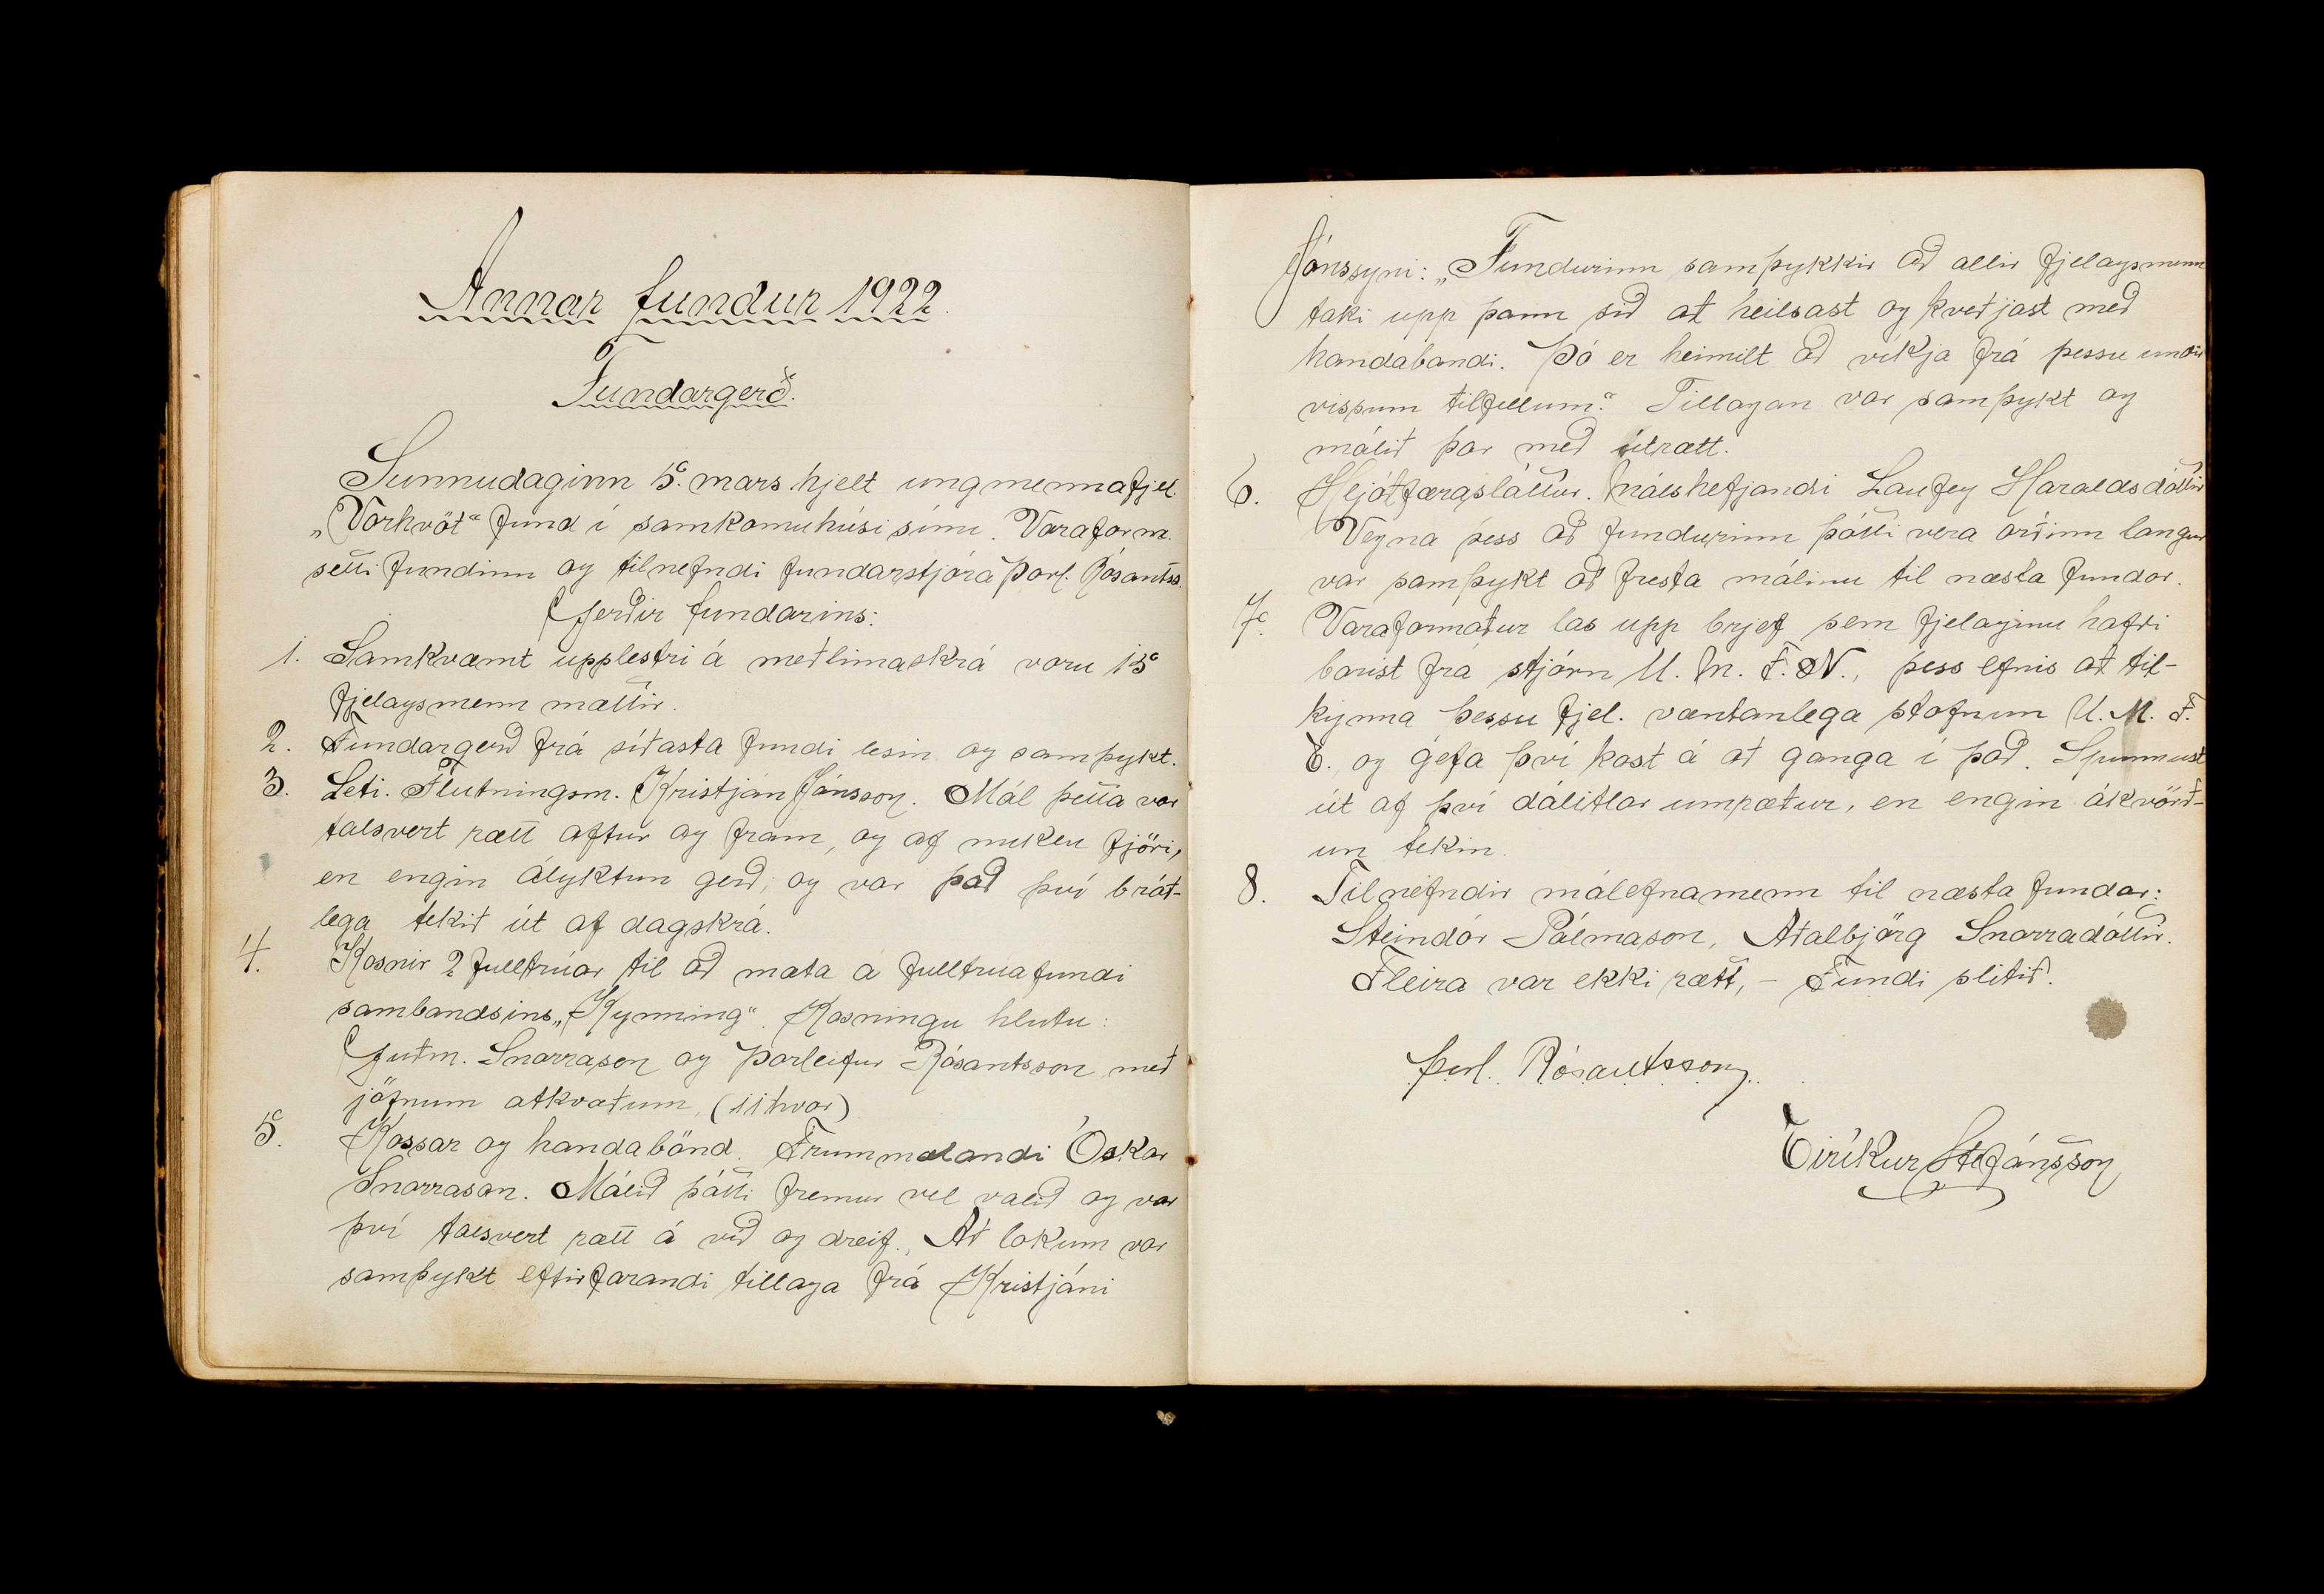 Annar fundur 1922.
Fundargerð.
Sunnudaginn 5. mars hjelt ungmennafjel.
„Vorhvöt“ fund í samkomuhúsi sínu. Varaform.
setti fundinn og tilnefndi fundarstjóra Þorl. Rósantss.
Gerðir fundarins:
1. Samkvæmt upplestri á meðlimaskrá voru 15
fjelagsmenn mættir.
2. Fundargerð frá síðasta fundi lesin og samþykt.
3. Leti. Flutningsm. Kristján Jónsson. Mál þetta var
talsvert rætt aftur og fram, og af miklu fjöri,
en engin ályktun gerð; og var það því bráð-
lega tekið út af dagskrá.
4. Kosnir 2 fulltrúar til að mæta á fulltrúafundi
sambandsins „Kynning“. Kosningu hlutu:
Guðm. Snorrason og Þorleifur Rósantsson með
jöfnum atkvæðum (11 hvor)
5. Kossar og handabönd. Frummælandi Óskar
Snorrason. Málið þótti fremur vel valið og var
því talsvert rætt á við og dreif. Að lokum var
samþykt eftirfarandi tillaga frá Kristjáni
Jónssyni: „Fundurinn samþykkir að allir fjelagsmenn
taki upp þann sið að heilsast og kveðjast með
handabandi. Þó er heimilt að víkja frá þessu undir
vissum tilfellum.“ Tillagan var samþykt og
málið þar með útrætt.
6. Hljóðfærasláttur. Málshefjandi Laufey Haraldsdóttir
Vegna þess að fundurinn þótti vera orðinn langur
var samþykt að fresta málinu til næsta fundar.
7. Varaformaður las upp brjef sem fjelaginu hafði
borist frá stjórn U. M. F. N., þess efnis að til-
kynna þessu fjel. væntanlega stofnun U. M. F.
E. og gefa því kost á að ganga í það. Spunnust
út af því dálitlar umræður, en engin ákvörð-
un tekin.
8. Tilnefndir málefnamenn til næsta fundar:
Steindór Pálmason, Aðalbjörg Snorradóttir.
Fleira var ekki rætt, – Fundi slitið.
Þorl. Rósantsson
Eiríkur Stefánsson